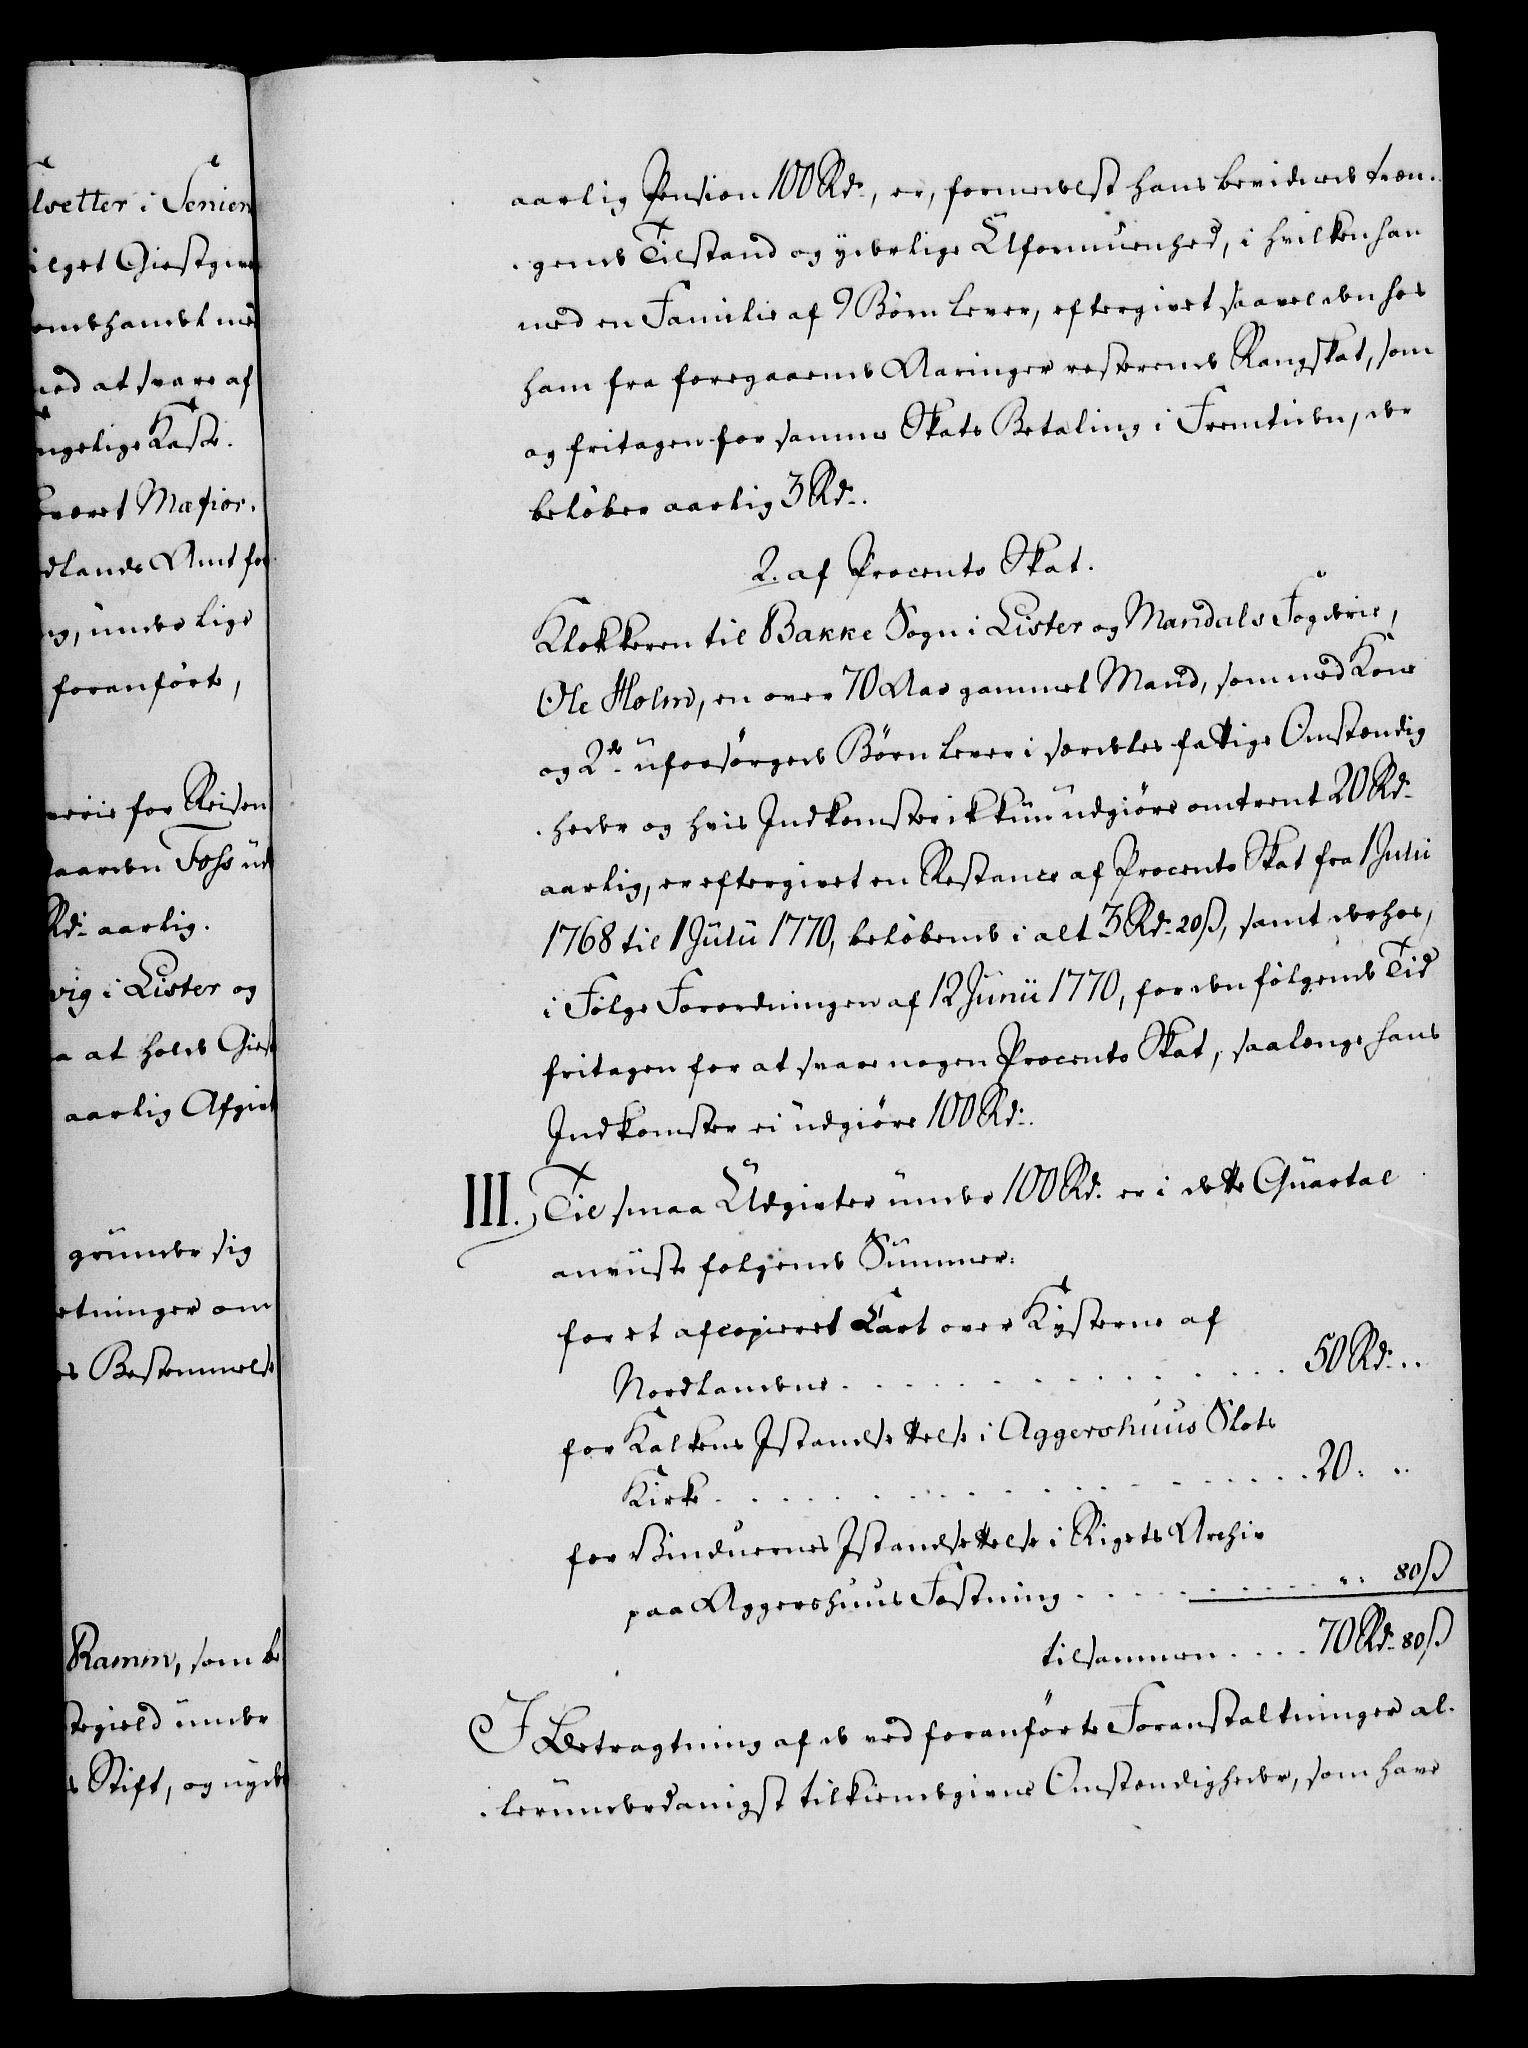 lsetter i Senien
ilget Giestgive
omhandel me
med at svare af
ngelige Kasse.
været Mæfior.
dlands Amt for
ng, under lige
foranførte,
verie for Reisen
aarden Foss ud
Rd. aarlig.
vig i Lister og
a at holde Giest
aarlig Afgivt
grunde sig
etninger om
s Bestemmelse
Ramm, som be
stegield under
s Stift, og nyde
aarlig Pension 100 Rd., er, formedelst hans bevidnede træn-
gende Tilstand og yderlige Uformuenhed, i hvilken han
med en Familie af 9 Børn lever, eftergivet saavel den hos
ham fra foregaaende Aaringer resterende Rangskat, som
og fritagen for samme Skats Betaling i Fremtiden, der
beløber aarlig 3 Rd.
2. af Procento Skat.
Klokkeren til Bakke Sogn i Lister og Mandals Fogderie,
Ole Holm, en over 70 Aar gammel Mand, som med Kone
og 2de uforsørgede Børn lever i særdeles fattige Omstændig
-heder og hvis Indkomster ikkun udgiøre omtrent 20 Rd.
aarlig, er eftergivet en Restance af Procento Skat fra 1 Julii
1768 til 1 Julii 1770, beløbende i alt 3 Rd. 20 ß, samt derhos,
i Følge Forordningen af 12 Junii 1770, for den følgende Tid
fritagen for at svare nogen Procento Skat, saalænge hans
Indkomster ei udgiøre 100 Rd.
III. Til smaa Udgivter under 100 Rd. er i dette Quartal
anviiste følgende Summer:
for et afcopieret Cart over Kysterne af
Nordlandene . . . . . . . . . . . . . 50 Rd. ..
for Kalkens Istandsettelse i Aggershuus Slots
Kirke . . . . . . . . . . . . . . . . . 20. ..
for Vinduernes Istandsettelse i Rigets Archiv
paa Aggershuus Fæstning . . . . . . . . . .. 80 ß
tilsammen . . . . 70 Rd. 80 ß
I Betragtning af de ved foranførte Foranstaltninger al-
-lerunderdanigst tilkiendegivne Omstændigheder, som have